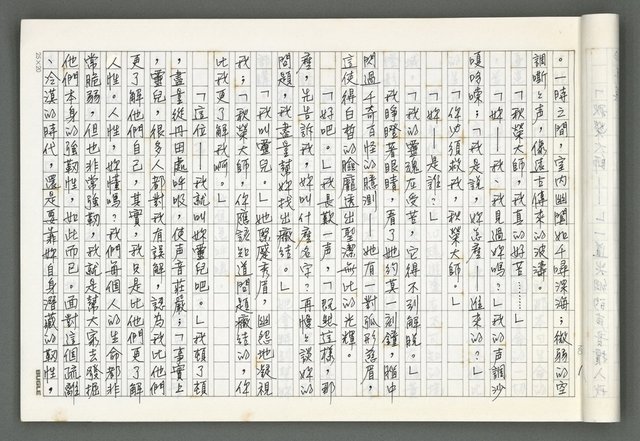 。一時之間，室內幽闃如千尋深海；微弱的空
調嘶嘶聲，像遠古傳來的波濤。
「秋榮大師，我真的好苦……」
「妳——我、我見過妳嗎？」我的聲調沙
嗄哆嗦；「我是說，妳怎麼——進來的？」
「你必須救我，秋榮大師。」
「妳——是誰？」
「我的靈魂在受苦，它得不到解脫。」
我睜瞪著眼睛，看了她約莫一刻鐘，腦中
閃過千奇百怪的臆測——她有一對弧形慈眉，
這使得白皙的臉龐透出聖潔無比的光輝。
「好吧。」我長歎一聲，「既然這樣，那
麼，先告訴我，妳叫什麼名字？再慢慢談妳的
問題，我盡量幫妳找出癥結。」
「我叫靈兒。」她緊蹙秀眉，幽怨地凝視
我：「秋榮大師，你應該知道問題癥結的，你
比我更了解我啊。」
「這位——我就叫妳靈兒吧。」我頓了頓
，盡量從丹田處呼吸，使聲音莊嚴：「事實上
，靈兒，很多人都對我有誤解，認為我比他們
更了解他們自己，其實，我只是比他們更了解
人性。人性，妳懂嗎？我們每個人的生命都非
常脆弱，但也非常強韌，我就是幫大家去發掘
他們本身的強韌性，如此而已。面對這個疏離
、冷漠的時代，還是要靠妳自身潛藏的韌性，
25×20
BUGLE